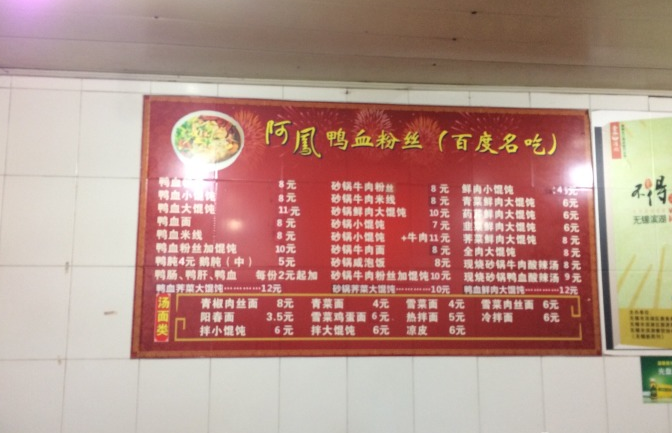 阿凤鸭血粉丝（百度名吃）
鸭血 8元 砂锅牛肉粉丝 8元 鲜肉小馄饨
鸭血小馄饨 8元 砂锅牛肉米线 8元 青菜鲜肉大馄饨 6元
鸭血大馄饨 11元 砂锅鲜肉大馄饨 10元 鲜肉大馄饨 6元
鸭血面 8元 砂锅小馄饨 7元 韭菜鲜肉大馄饨 6元
鸭血米线 8元 砂锅小馄饨 +牛肉11元 荠菜鲜肉大馄饨 8元
鸭血粉丝加馄饨 10元 砂锅牛肉面 8元 全肉大馄饨 8元
鸭肫4元 鹅肫（中） 5元 砂锅咸泡饭 8元 现烧砂锅牛肉酸辣汤 8元
鸭肠、鸭肝、鸭血 每份2元起加 砂锅牛肉粉丝加馄饨 10元 现烧砂锅鸭血酸辣汤 9元
鸭血荠菜大馄饨…………12元 砂锅荠菜大馄饨…………10元 鸭血鲜肉大馄饨…………12元
汤面类
青椒肉丝面 8元 青菜面 4元 雪菜面 4元 雪菜肉丝面 6元
阳春面 3.5元 雪菜鸡蛋面 6元 热拌面 5元 冷拌面 6元
拌小馄饨 6元 拌大馄饨 6元 凉皮 6元
不得